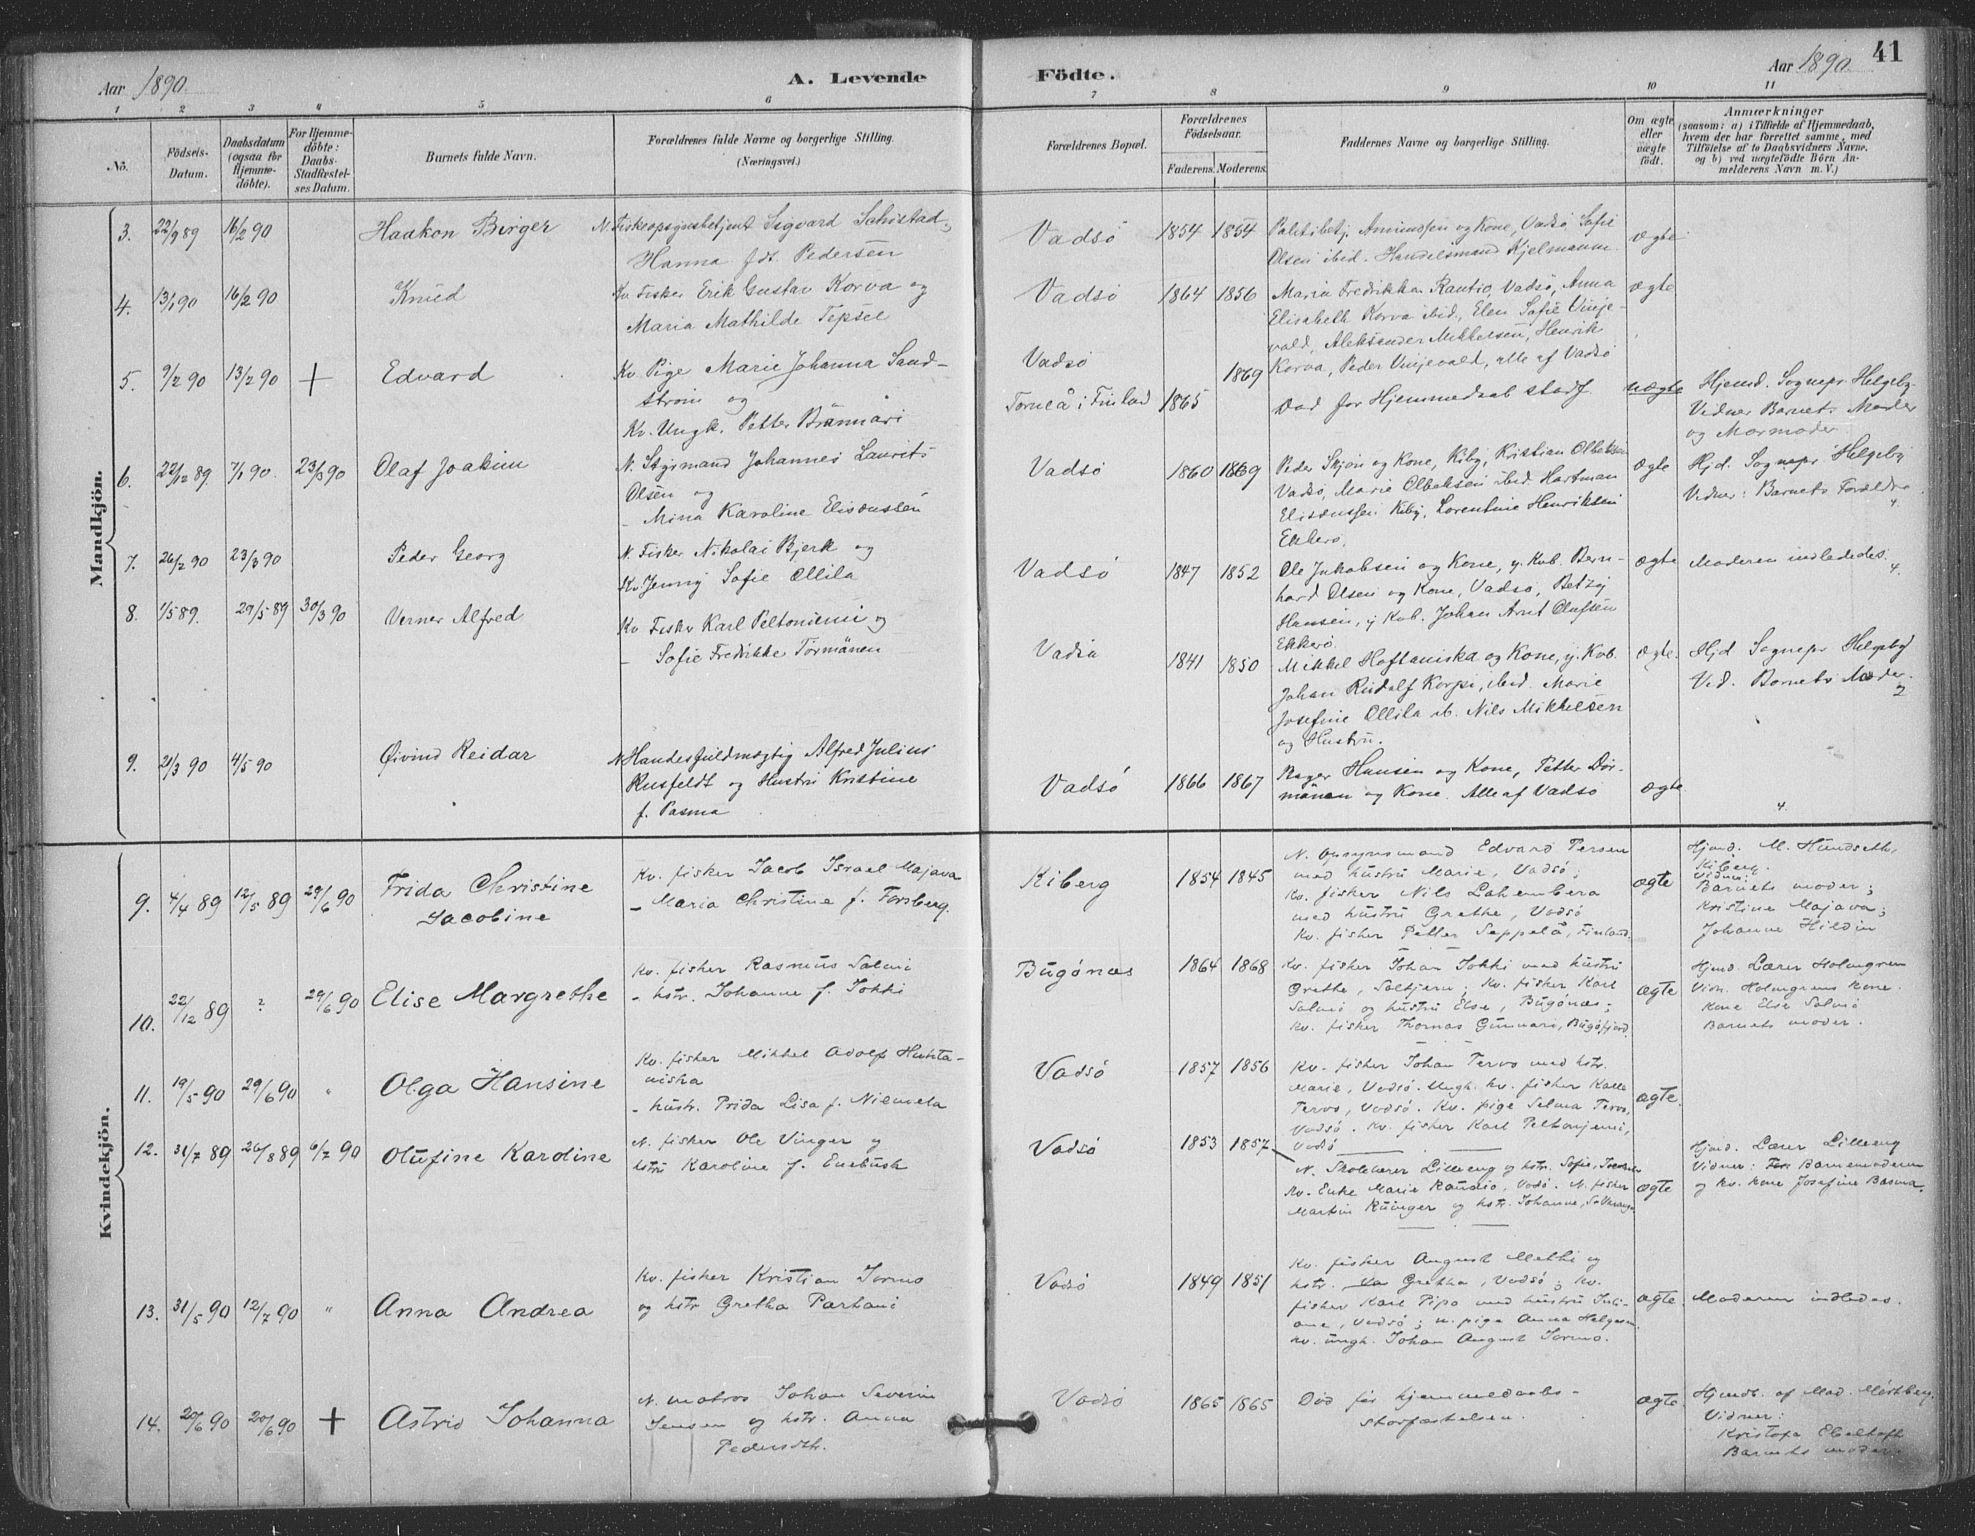 Aar 1890.
A. Levende Födte.
Aar 1890.
41
1 2 3 4 5 6 7 8 9 10 11
No.
Födsels-Datum.
Daabsdatum (ogsaa for Hjemme-döbte).
For Hjemme-döbte: Daabs-Stadfæstel-ses Datum.
Barnets fulde Navn.
Forældrenes fulde Navne og borgerlige Stilling.
(Næringsvei.)
Forældrenes Bopæl.
Forældrenes Födselsaar.
Faderens. Moderens.
Faddernes Navne og borgerlige Stilling.
Om ægte eller uægte födt.
Anmærkninger
(saasom: a) i Tilfælde af Hjemmedaab,
hvem der har forrettet samme, med
Tilföielse af to Daabsvidners Navne,
og b) ved uægtefödte Börn An-
melderens Navn m. V.)
Mandkjön.
3. 22/9 89 16/2 90 Haakon Birger
N. Fiskeopsynsbetjent Sigvard Schistad
Hanna fdt. Pedersen
Vadsö 1854 1854
Politibetj. Amundsen og Kone, Vadsö, Sofie
Olsen ibid. Handelsmand Kjelmann.
ægte
4. 13/1 90 16/2 90 Knud
Kv. Fisker Erik Gustav Korva og
Maria Mathilde Tepsel
Vadsö 1864 1856
Maria Fredrikka Rautio, Vadsö, Anna
Elisabeth Korva ibid, Elen Sofie Vinje-
vald, Aleksander Mikkelsen, Henrik
Korva, Peder Vinjevald, alle af Vadsö
ægte
5. 9/2 90 13/2 90 + Edvard
Kv. Pige Marie Johanna Sand-
ström og
Kv. Ungk. Petter Brännäri
Vadsö 1869
Torneå i Finland 1865
Död för Hjemmedaab stadf.
uægte
Hjemd. Sognepr. Helgeby
Vidner Barnets Moder
og Mormoder
6. 22/12 89. 7/1 90. 23/3 90 Olaf Joakim
N. Styrmand Johannes Laurits
Olsen og
- Mina Karoline Elisæussen
Vadsö 1860 1869
Peder Skjön og Kone, Kiby, Kristian Olbeksen
Vadsö, Marie Olbeksen ibid. Hartman
Elisæussen Kiby, Lorentine Henriksen
Ekkerö.
ægte
Hjd. Sognepr. Helgeby
Vidner: Barnets Forældre
4.
7. 26/2 90 23/3 90 Peder Georg
N. Fisker Nikolai Bjerk og
Kv. Jenny Sofie Ollila
Vadsö 1847 1852
Ole Jakobsen og Kone, y. Kvb. Bern-
hard Olsen og Kone, Vadsö, Betzy
Hansen, y Kvb. Johan Arnt Olufsen
Ekkerö
ægte
Moderen indlededes.
4.
8. 1/5 89. 29/5 89 30/3 90 Verner Alfred
Kv Fisker Karl Peltoniemi og
- Sofie Fredrikke Törmänen
Vadsö 1841 1850
Mikkel Hoftaniska og Kone, y. Kvb.
Johan Rudolf Korpi, ibid. Marie
Josefine Ollila ib. Nils Mikkelsen
og Hustru.
ægte.
Hjd. Sognepr Helgeby
Vid. Barnets Moder.
2
9. 21/3 90 4/5 90 Öivind Reidar
N Handelsfuldmægtig Alfred Julius
Rusfeldt og Hustru Kristine
f. Pasma
Vadsö 1866 1867
Bager Hansen og Kone, Petter Dör-
mänen og Kone. Alle af Vadsö
ægte
4.
Kvindekjön.
9. 4/4 89 12/5 89 29/6 90 Frida Christine
Jacobine
Kv. fisker Jacob Israel Majava
- Maria Christine f. Forsberg.
Kiberg 1854 1845
N. Opsynsmand Edvard Persen
med hustru Marie, Vadsö;
Kv. fisker Nils Lahenperä
med hustru Grethe, Vadsö
Kv. fisker Petter Seppelä, Finland.
ægte
Hjmd. M. Hundseth,
Kiberg.
Vidner:
Barnets moder;
Kristine Majava;
Johanne Hildin
10. 22/12 89 ? 29/6 90 Elise Margrethe
Kv. fisker Rasmus Salmi
- hstr. Johanne f. Jokki
Bugönæs 1864 1868
Kv. fisker Johan Jokki med hustru
Grethe, Saltjern; Kv. fisker Karl
Salmi og hustru Else, Bugönæs;
Kv. fisker Thomas Gunnari, Bugöfjord
ægte
Hjmd. Lærer Holmgren
Vidn. Holmgrens kone.
Kone Else Salmi
Barnets moder.
11. 19/5 90 29/6 90 " Olga Hansine
Kv. fisker Mikkel Adolf Huhta-
niska
- hustr. Frida Lisa f. Niemela
Vadsö 1857 1856
Kv. fisker Johan Tervo med hstr.
Marie, Vadsö. Ungk. kv. fisker Kalle
Tervo, Vadsö. Kv. pige Selma Tervo,
Vadsö. Kv. fisker Karl Peltonjemi,
Vadsö
ægte.
12. 31/7 89 26/8 89 6/7 90 Olufine Karoline
N. fisker Ole Vinger og
hstru Karoline f. Enebusk
Vadsö 1853 1857
N. Skolelærer Lilleeng og hstr. Sofie,
Kv. Enke Marie Rautio, Vadsö. N. fisker
Martin Ruinger og hstr. Johanne, S. Varanger
ægte
Hjmd. Lærer Lilleeng
Vidner: Barnemoderen
og kv. kone Josefine Basma.
13. 31/5 90 12/7 90 " Anna Andrea
Kv. fisker Kristian Jormo
og hstr Gretha Partani
Vadsö 1849 1851
Kv. fisker August Matti og
hstr. Gretha, Vadsö; Kv.
fisker Karl Pipo med hustru Juli-
ane, Vadsö; n. pige Anna Helgesen
kv. ungk. Johan August Jormo.
ægte.
Moderen indledes.
14. 20/6 90 20/6 90 + Astrid Johanna
N. matros Johan Severin
Jensen og hstr. Anna
Pedersdtr.
Vadsö 1865 1865
Död för hjemmedaabs-
storfæstelsen.
ægte.
Hjmdb. af Mad. Mörkberg.
Vidner:
Kristofa Ebeltoft
Barnets moder.